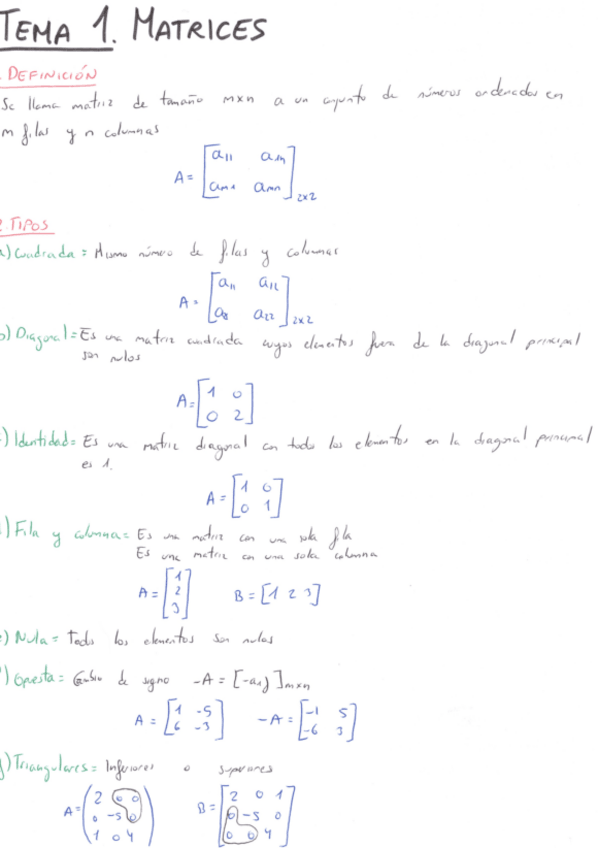 TEMA 1. MATRICES
DEFINICIÓN
Se llama matriz de tamaño mxn a un conjunto de números ordenados en
m filas y n columnas
A = [a11 a1n
am1 amn] 2x2
2 TIPOS
a) Cuadrada = Mismo número de filas y columnas
A = [a11 a12
a22] 2x2
b) Diagonal = Es una matriz cuadrada cuyos elementos fuera de la diagonal principal
son nulos
A = [1 0
0 2]
) Identidad = Es una matriz diagonal con todo los elementos en la diagonal principal
es 1.
A = [1 0
0 1]
) Fila y columna = Es una matriz con una sola fila
Es una matriz con una sola columna
A = [1
2
3] B = [1 2 3]
) Nula = Todo los elementos son nulos
) Opuesta = Cambio de signo -A = [-aij]mxn
A = [1 -5
6 -3] -A = [-1 5
-6 3]
) Triangulares = Inferiores o superiores
A = (2 0 0
0 -5 0
1 0 4) B = [2 0 1
0 -5 0
0 0 4]